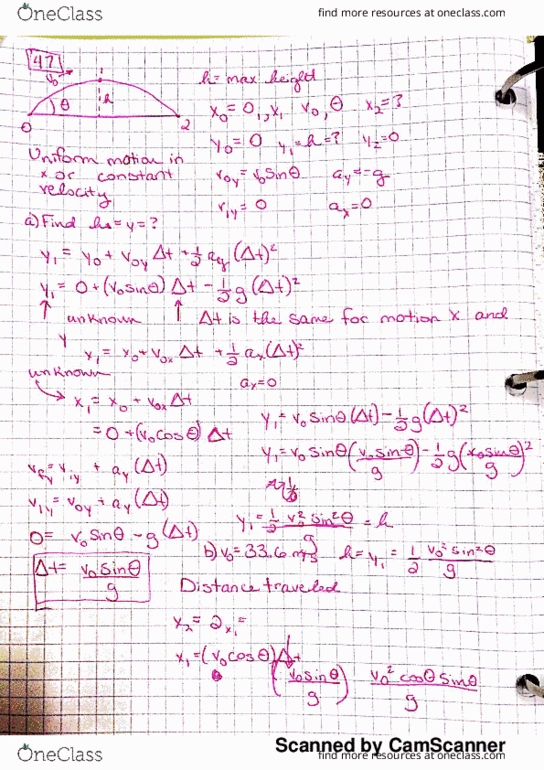 OneClass
find more resources at oneclass.com
47
v₀
h = max height
θ
h
0
2
x₀ = 0, x₁ v₀, θ x₂ = ?
y₀ = 0 y₁ = h = ? y₂ = 0
Uniform motion in
x or constant
velocity
v₀y = v₀ sinθ ay = -g
v₁y = 0 ax = 0
a) Find h = y = ?
y₁ = y₀ + v₀y Δt + ½ ay (Δt)²
y₁ = 0 + (v₀ sinθ) Δt - ½ g (Δt)²
unknown Δt is the same for motion x and
y
x₁ = x₀ + v₀x Δt + ½ ax (Δt)²
unknown
ax = 0
x₁ = x₀ + v₀x Δt
= 0 + (v₀ cosθ) Δt
y₁ = v₀ sinθ (Δt) - ½ g (Δt)²
y₁ = v₀ sinθ (v₀ sinθ / g) - ½ g (v₀ sinθ / g)²
vfy = viy + ay (Δt)
v₁y = v₀y + ay (Δt)
y₁ = ½ v₀² sin²θ / g = h
0 = v₀ sinθ - g (Δt)
b) v₀ = 33.6 m/s h = y₁ = ½ v₀² sin²θ / g
Δt = v₀ sinθ / g
Distance traveled
x₂ = 2x₁ =
x₁ = (v₀ cosθ) Δt
(v₀ sinθ / g) v₀² cosθ sinθ / g
Scanned by CamScanner
OneClass
find more resources at oneclass.com